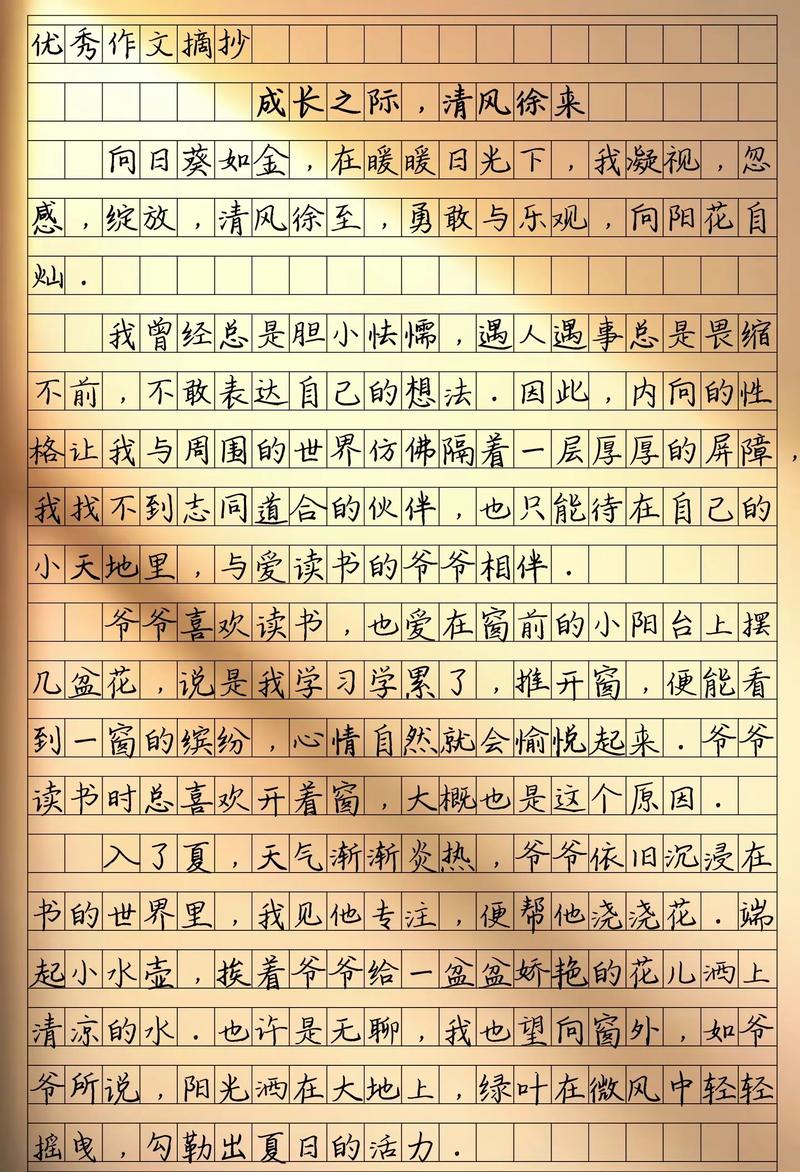 优秀作文摘抄
成长之际，清风徐来
向日葵如金，在暖暖日光下，我凝视，忽
感，绽放，清风徐至，勇敢与乐观，向阳花自
灿．
我曾经总是胆小怯懦，遇人遇事总是畏缩
不前，不敢表达自己的想法．因此，内向的性
格让我与周围的世界仿佛隔着一层厚厚的屏障，
我找不到志同道合的伙伴，也只能待在自己的
小天地里，与爱读书的爷爷相伴．
爷爷喜欢读书，也爱在窗前的小阳台上摆
几盆花，说是我学习学累了，推开窗，便能看
到一窗的缤纷，心情自然就会愉悦起来．爷爷
读书时总喜欢开着窗，大概也是这个原因．
入了夏，天气渐渐炎热，爷爷依旧沉浸在
书的世界里，我见他专注，便帮他浇浇花．端
起小水壶，挨着爷爷给一盆盆娇艳的花儿洒上
清凉的水．也许是无聊，我也望向窗外，如爷
爷所说，阳光洒在大地上，绿叶在微风中轻轻
摇曳，勾勒出夏日的活力．